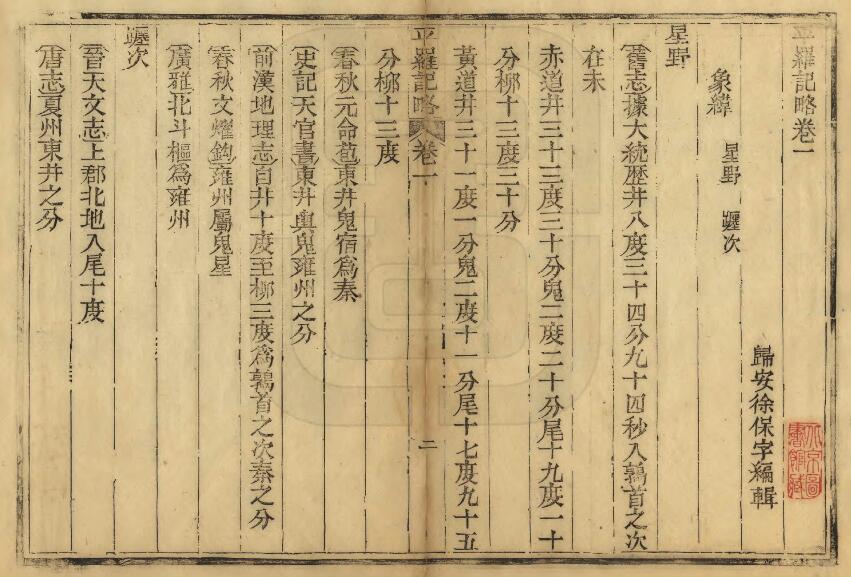 平羅記略卷一
歸安徐保字編輯
象緯　星野　躔次
星野
舊志據大統歷井八度三十四分九十四秒入鶉首之次
在未
赤道井三十三度三十分鬼二度二十分尾十九度一十
分柳十三度三十分
黃道井三十一度一分鬼二度十一分尾十七度九十五
平羅記略 卷一 二
分柳十三度
春秋元命苞東井鬼宿爲秦
史記天官書東井輿鬼雍州之分
前漢地理志自井十度至柳三度爲鶉首之次秦之分
春秋文耀鈎雍州屬鬼星
廣雅北斗樞爲雍州
躔次
晉天文志上郡北地入尾十度
唐志夏州東井之分